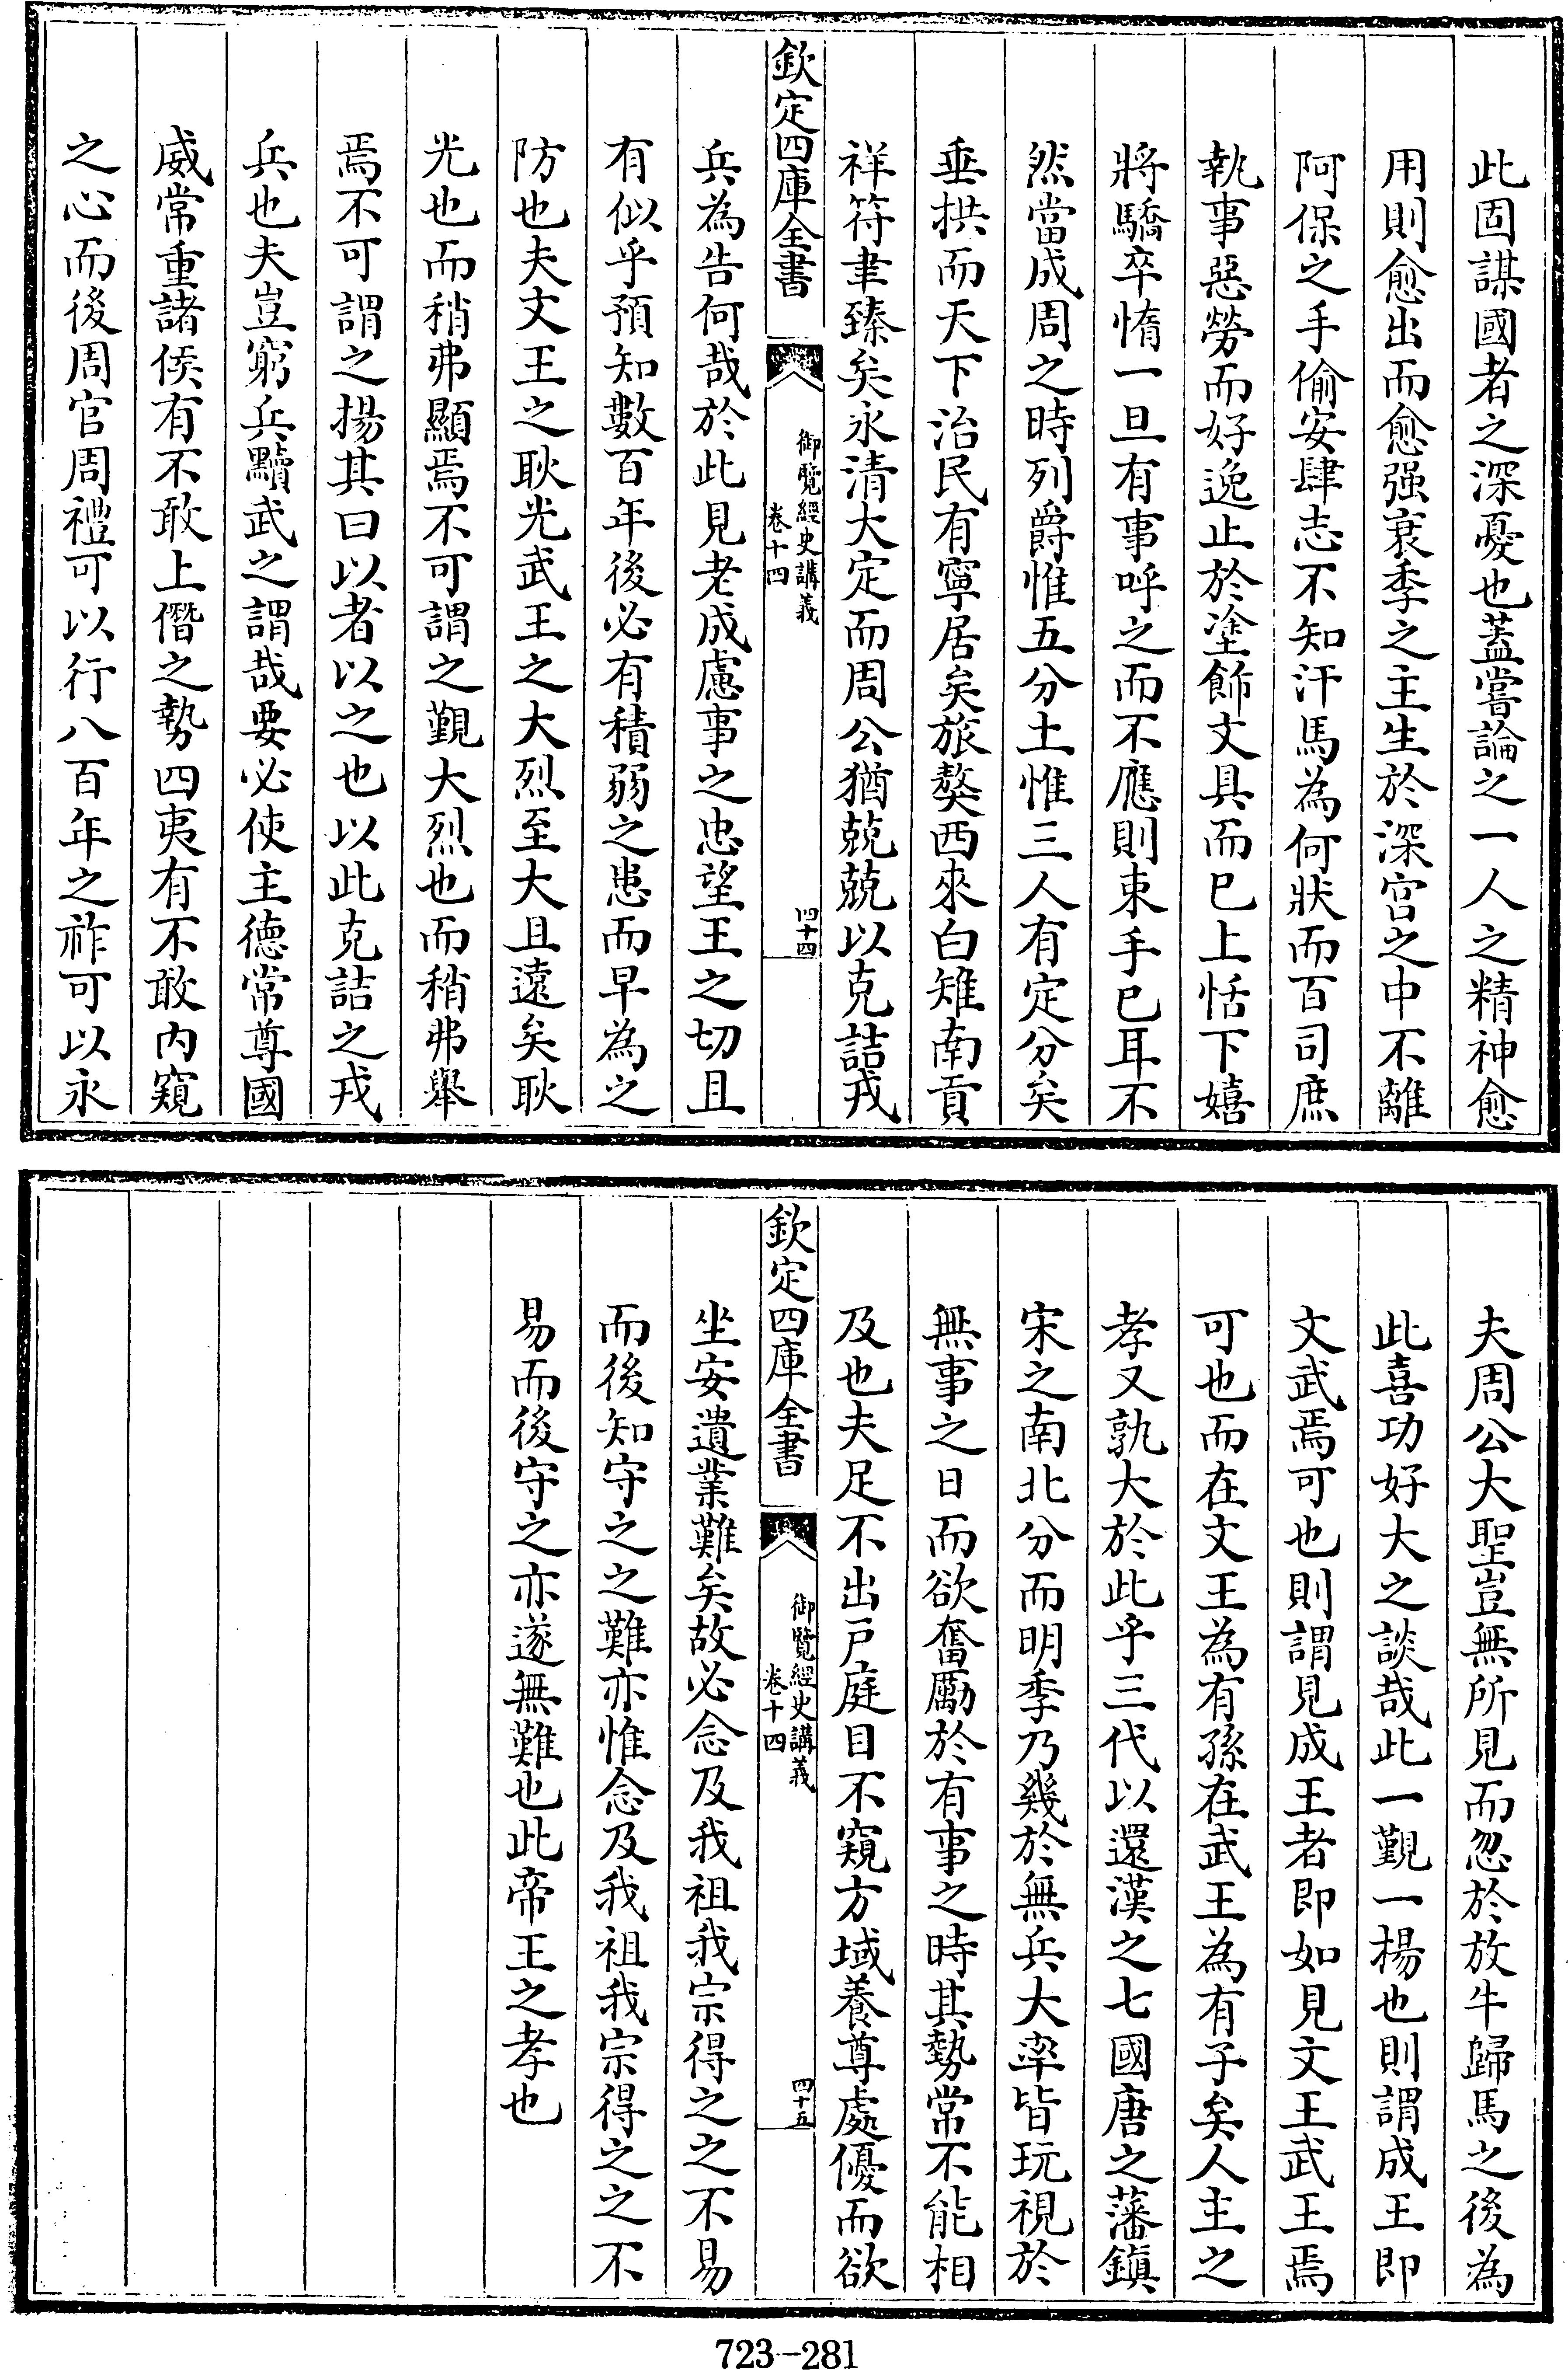 此固謀國者之深憂也蓋嘗論之一人之精神愈
用則愈出而愈强衰季之主生於深宫之中不離
阿保之手偷安肆志不知汗馬為何狀而百司庶
執事惡勞而好逸止於塗飾文具而已上恬下嬉
將驕卒惰一旦有事呼之而不應則束手已耳不
然當成周之時列爵惟五分土惟三人有定分矣
垂拱而天下治民有寧居矣旅獒西來白雉南貢
祥符聿臻矣永清大定而周公猶兢兢以克詰戎
欽定四庫全書
御覽經史講義
卷十四
四十四
兵為告何哉於此見老成慮事之忠望王之切且
有似乎預知數百年後必有積弱之患而早為之
防也夫文王之耿光武王之大烈至大且遠矣耿
光也而稍弗顯焉不可謂之覲大烈也而稍弗舉
焉不可謂之揚其曰以者以之也以此克詰之戎
兵也夫豈窮兵黷武之謂哉要必使主德常尊國
威常重諸侯有不敢上僭之勢四夷有不敢内窺
之心而後周官周禮可以行八百年之祚可以永
夫周公大聖豈無所見而忽於放牛歸馬之後為
此喜功好大之談哉此一覲一揚也則謂成王即
文武焉可也則謂見成王者即如見文王武王焉
可也而在文王為有孫在武王為有子矣人主之
孝又孰大於此乎三代以還漢之七國唐之藩鎮
宋之南北分而明季乃幾於無兵大率皆玩視於
無事之日而欲奮勵於有事之時其勢常不能相
及也夫足不出戶庭目不窺方域養尊處優而欲
欽定四庫全書
御覽經史講義
卷十四
四十五
坐安遺業難矣故必念及我祖我宗得之之不易
而後知守之之難亦惟念及我祖我宗得之之不
易而後守之亦遂無難也此帝王之孝也
723-281